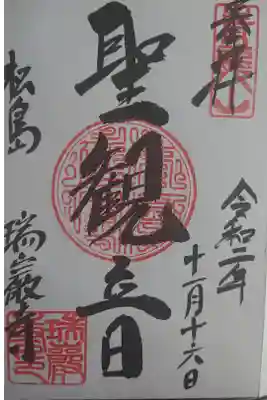 奉拝
令和二年
十一月十六日
聖観音
松島 瑞巌寺